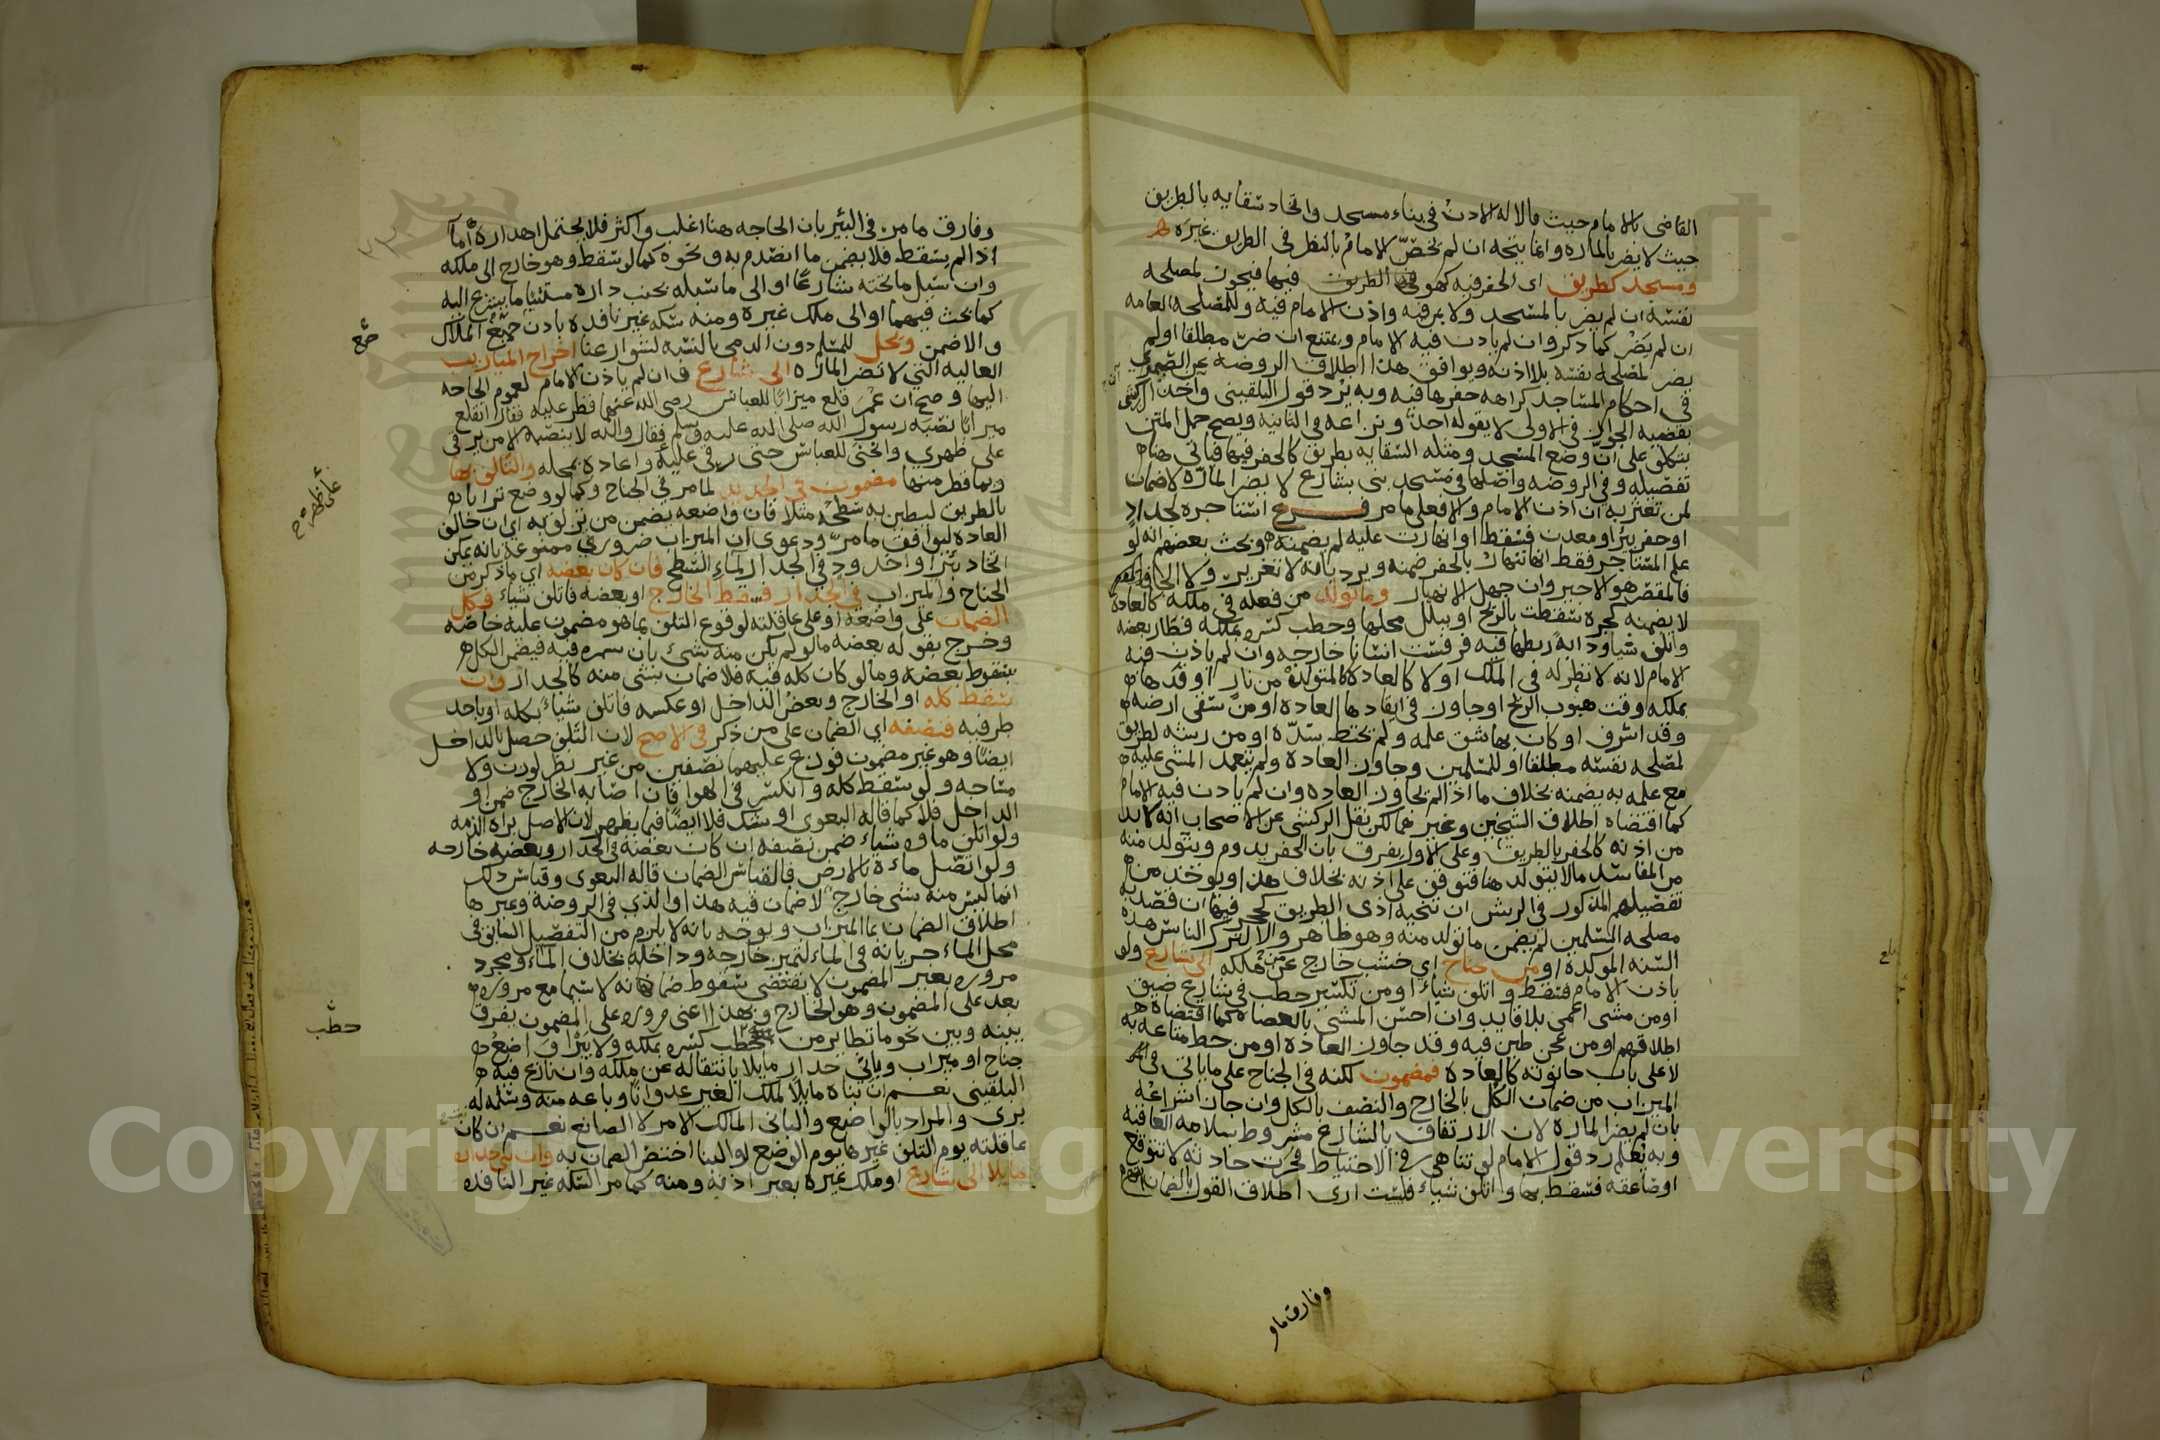 القاضى بالامام حيث قالا له الاذن في بناء مسجد واتخاذ سقايه بالطريق
حيث لا يضر بالماره وانما يتجه ان لم يخص الامام بالنظر في الطريق غيره
ومسجد كطريق اى الحفر فيه كهو في الطريق فيها فيجوز لمصلحه
نفسه ان لم يضر بالمسجد ولا بمن فيه واذن الامام فيه وللمصلحه العامه
ان لم يضر كما ذكر وان لم ياذن فيه الامام ويمتنع ان ضر مطلقا او لم
يضر لمصلحة نفسه بلا اذنه ويوافق هذا اطلاق الروضه عن الصيمري
في احكام المساجد كراهه حفرها فيه وبه يرد قول البلقيني
بقضيه الجواز في الاولى لا يقوله احد ونزاعه في الثانيه ويصح حمل المتن
بتكلف على ان وضع المسجد ومثله السقايه بطريق كالحفر فيها فياتي هنا
تفصيله وفي الروضه واصلها في مسجد بني بشارع لا يضر الماره لا ضمان
لمن تعثر به ان اذن الامام والا فعلى ما مر فرع استاجره لجداد
او حفر بئر او معدن فسقط او انهارت عليه لم يضمنه وبحث بعضهم انه لو
علم المستاجر فقط انها تنهار بالحفر ضمنه ويرد بانه لا تغرير ولا الجا
فالمقصر هو الاجير وان جهل الانهيار وما تولد من فعله في ملكه كالعاده
لا يضمنه كجره سقطت بالريح او ببلل محلها وحطب كسره بملكه فطار بعضه
واتلف شيا ودابة ربطها فيه فرفست انسانا خارجه وان لم ياذن فيه
الامام لانه لا نظر له في الملك اولا كالعادة كالمتولد من نار اوقدها
بملكه وقت هبوب الريح او جاوز في ايقادها العاده او من سقى ارضه
وقد اسرف او كان بها شق علمه ولم يحتط بسده او من رشه لطريق
لمصلحه نفسه مطلقا او للمسلمين وجاوز العادة ولم يتعمد المشى عليه
مع علمه به يضمنه بخلاف ما اذا لم يجاوز العاده وان لم ياذن فيه الامام
كما اقتضاه اطلاق الشيخين وغيرهما لكن نقل الزركشي عن الاصحاب انه لابد
من اذنه كالحفر بالطريق وعلى الاول يفرق بان الحفر يدوم ويتولد منه
من المفاسد ما لا يتولد هنا فتوقف على اذنه بخلاف هذا ويوخذ من
تفصيلهم المذكور في الرش ان تنحيه اذى الطريق كحجر فيها ان قصد به
مصلحه المسلمين لم يضمن ما تولد منه وهو ظاهر والا لترك الناس هذه
السنه الموكده او من جناح اي خشب خارج عن ملكه الى شارع ولو
باذن الامام فسقط واتلف شيا او من تكسير حطب في شارع ضيق
او من مشى اعمى بلا قايد وان احسن المشى بالعصا كما اقتضاه
اطلاقهم او من عجن طين فيه وقد جاوز العاده او من حط متاعه به
لا على باب حانوته كالعاده فمضمون لكنه في الجناح على ما ياتي في
الميزاب من ضمان الكل بالخارج والنصف بالكل وان جاز اشراعه
بان لم يضر الماره لان الارتفاق بالشارع مشروط بسلامه العاقبه
وبه يعلم رد قول الامام لو تناهى في الاحتياط فجرت حادثه لا تتوقع
او صاعقه فسقط بها واتلف شيا فلست ارى اطلاق القول بالضمان
وفارق ما مر
وفارق ما مر في البئر بان الحاجه هنا اغلب واكثر فلا يحتمل اهداره اما
اذا لم يسقط فلا يضمن ما انصدم به ونحوه كما لو سقط وهو خارج الى ملكه
وان سبل ما تحته شارعا او الى ما سبله بجنب داره مستثنيا ما يشرع اليه
كما بحث فيهما او الى ملك غيره ومنه سكه غير نافده باذن جميع الملاك
والا ضمن ويحل للمسلم دون الذمي بالنسبه لشوارعنا اخراج الميازيب
العاليه التي لا تضر الماره الى شارع وان لم ياذن الامام لعموم الحاجه
اليها وصح ان عمر قلع ميزابا للعباس رضى الله عنهما قطر عليه فقال اتقلع
ميزابا نصبه رسول الله صلى الله عليه وسلم فقال والله لا ينصبه الا من يرقى
على ظهري وانحنى للعباس حتى رقى عليه واعاده بمحله والتالف بها
وبما قطر منها مضمون في الجديد لما مر في الجناح وكما لو وضع ترابا
بالطريق ليطين به سطحه مثلا فان واضعه يضمن من يزلق به اي ان خالف
العاده ليوافق ما مر ودعوى ان الميزاب ضروري ممنوعه بانه يمكن
اتخاذ بئر او اخدود في الجدار لماء السطح فان كان بعضه اي ما ذكر من
الجناح والميزاب في الجدار فسقط الخارج او بعضه فاتلف شياء فكل
الضمان على واضعه او على عاقلته لوقوع التلف بما هو مضمون عليه خاصه
وخرج بقوله بعضه ما لو لم يكن منه شيء بان سمره فيه فيضمن الكل
بسقوط بعضه وما لو كان كله فيه فلا ضمان بشى منه كالجدار وان
سقط كله او الخارج وبعض الداخل او عكسه فاتلف شياء بكله او باحد
طرفيه فنصفه اي الضمان على من ذكر في الاصح لان التلف حصل بالداخل
ايضا وهو غير مضمون فوزع عليهما نصفين من غير نظر لوزن ولا
مساحه ولو سقط كله وانكسر في الهوا فان اصابه الخارج ضمن او
الداخل فلا كما قاله البغوى او شك فلا ايضا فيما يظهر لان الاصل براة الذمه
ولو اتلف ماوه شياء ضمن نصفه ان كان بعضه في الجدار وبعضه خارجه
ولو اتصل ماءه بالارض فالقياس الضمان قاله البغوى وقياس ذلك
انما ليس منه شى خارج لا ضمان فيه هذا والذي في الروضه وغيرها
اطلاق الضمان بما الميزاب ويوجه بانه لا يلزم من التفصيل السابق في
محل الماء جريانه في الماء لتميز خارجه وداخله بخلاف الماء ومجرد
مروره بغير المضمون لا يقتضي سقوط ضمانه لا سيما مع مروره
بعد على المضمون وهو الخارج وبهذا اعنى مروره على المضمون يفرق
بينه وبين نحو ما تطاير من حطب كسره بملكه ولا يبرا واضع
جناح او ميزاب وباني جدار مايلا بانتقاله عن ملكه وان نازع فيه
البلقيني نعم ان بناه مايلا لملك الغير عدوانا وباعه منه وسلمه له
برى والمراد بالواضع والباني المالك الامر لا الصانع نعم ان كان
عاقلته يوم التلف غيرها يوم الوضع او البنا اختص الضمان به وان بنى جداره
مايلا الى شارع او ملك غيره بغير اذنه ومنه كما مر السكه غير النافذه
جميع
على ظهره صح
حطب
بلغ
Copyright King University